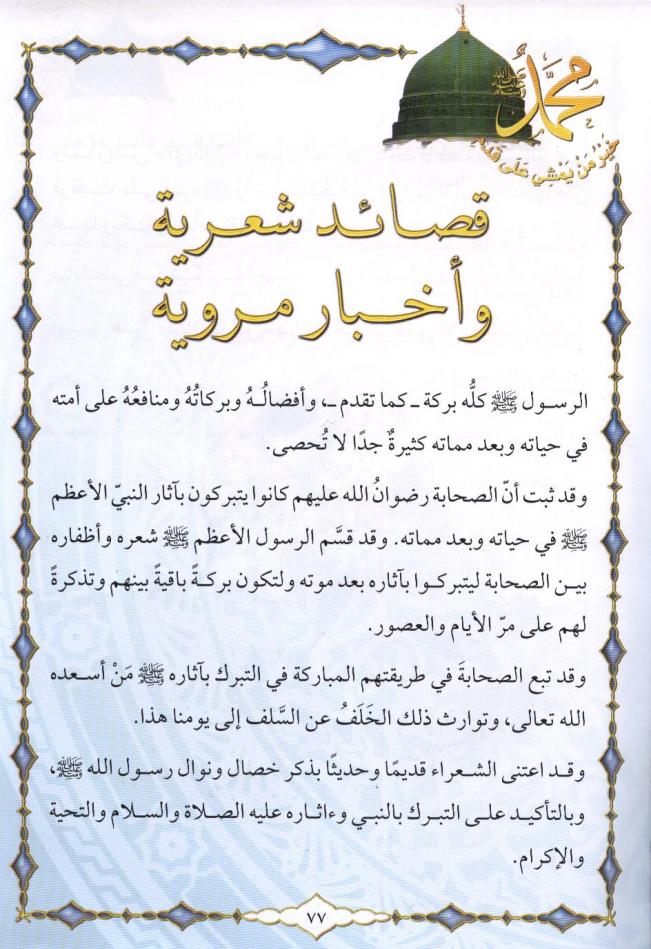 محمد ﷺ
خير من يمشي على قدم
قصائد شعرية
وأخبار مروية
الرسول ﷺ كلُّه بركة ـ كما تقدم ـ، وأفضالُهُ وبركاتُهُ ومنافعُهُ على أمته
في حياته وبعد مماته كثيرةٌ جدًا لا تُحصى.
وقد ثبت أنّ الصحابة رضوانُ الله عليهم كانوا يتبركون بآثار النبيّ الأعظم
ﷺ في حياته وبعد مماته. وقد قسَّم الرسول الأعظم ﷺ شعره وأظفاره
بين الصحابة ليتبركوا بآثاره بعد موته ولتكون بركةً باقيةً بينهم وتذكرةً
لهم على مرّ الأيام والعصور.
وقد تبع الصحابةَ في طريقتهم المباركة في التبرك بآثاره ﷺ مَنْ أسعده
الله تعالى، وتوارث ذلك الخَلَفُ عن السَّلف إلى يومنا هذا.
وقد اعتنى الشعراء قديمًا وحديثًا بذكر خصال ونوال رسول الله ﷺ،
وبالتأكيد على التبرك بالنبي وءاثاره عليه الصلاة والسلام والتحية
والإكرام.
٧٧